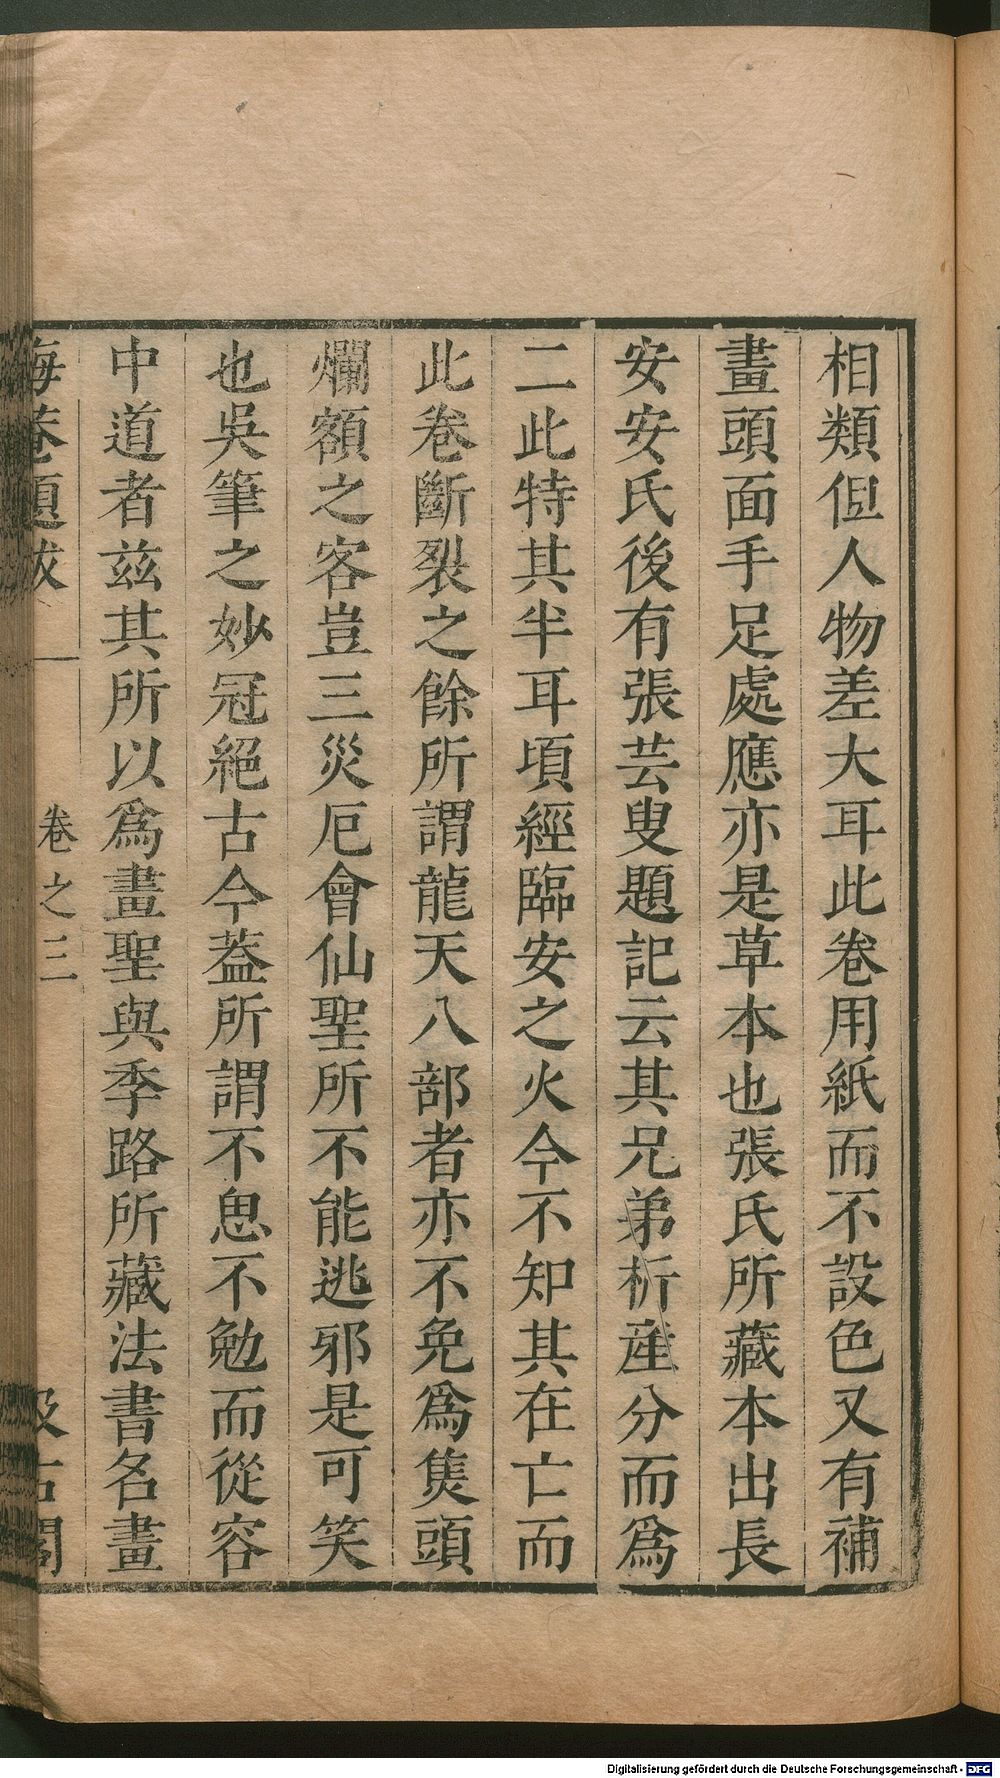 相類但人物差大耳此卷用紙而不設色又有補
畫頭面手足處應亦是草本也張氏所藏本出長
安安氏後有張芸叟題記云其兄弟析産分而爲
二此特其半耳頃經臨安之火今不知其在亡而
此卷斷裂之餘所謂龍天八部者亦不免爲隻頭
爛額之客豈三災厄會仙聖所不能逃邪是可笑
也吳筆之妙冠絕古今蓋所謂不思不勉而從容
中道者兹其所以爲畫聖與季路所藏法書名畫
海菴題跋 卷之三 汲古閣
Digitalisierung gefördert durch die Deutsche Forschungsgemeinschaft - DFG